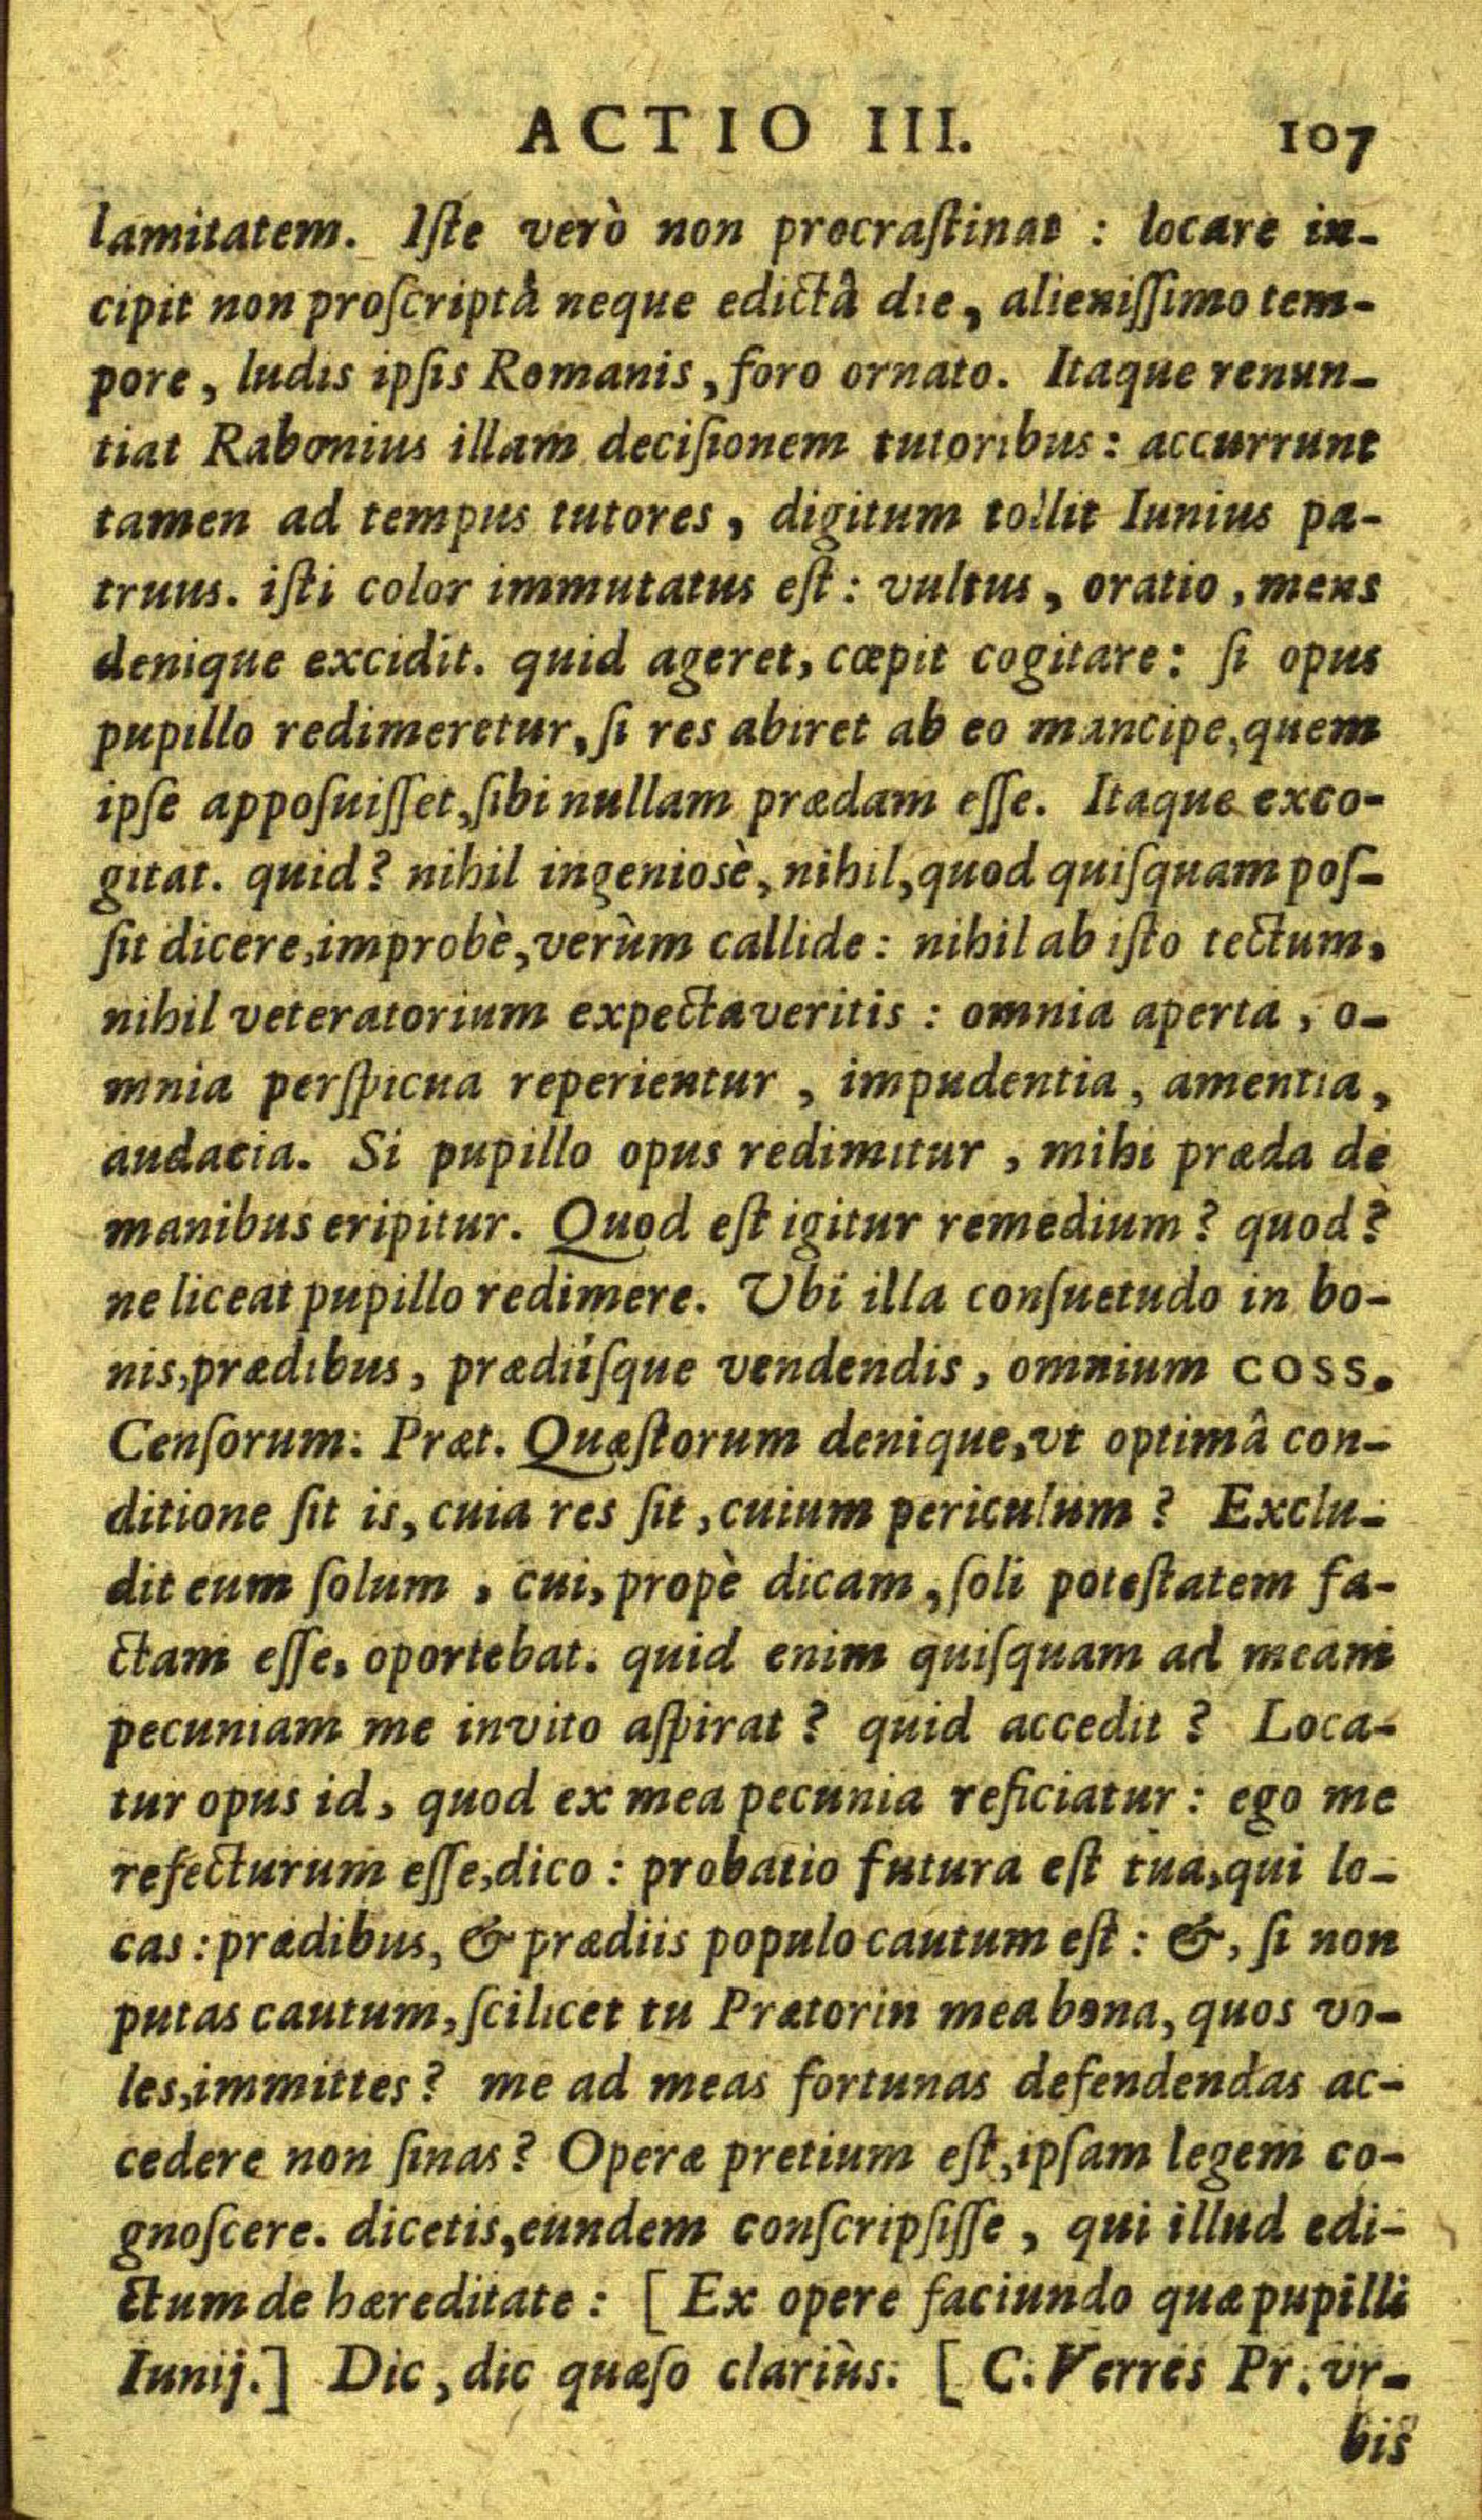 ACTIO III. 107
lamitatem. Iſte verò non procraſtinat : locare in-
cipit non proſcriptâ neque edictâ die, alieniſſimo tem-
pore, ludis ipſis Romanis, foro ornato. Itaque renun-
tiat Rabonius illam deciſionem tutoribus: accurrunt
tamen ad tempus tutores, digitum tollit Iunius pa-
truus. iſti color immutatus eſt: vultus, oratio, mens
denique excidit. quid ageret, cœpit cogitare: ſi opus
pupillo redimeretur, ſi res abiret ab eo mancipe, quem
ipſe appoſuiſſet, ſibi nullam prædam eſſe. Itaque exco-
gitat. quid? nihil ingeniosè, nihil, quod quiſquam poſ-
ſit dicere, improbè, verùm callide: nihil ab iſto tectum,
nihil veteratorium expectaveritis : omnia aperta, o-
mnia perſpicua reperientur, impudentia, amentia,
audacia. Si pupillo opus redimitur, mihi præda de
manibus eripitur. Quod eſt igitur remedium? quod?
ne liceat pupillo redimere. Ubi illa conſuetudo in bo-
nis, prædibus, prædiiſque vendendis, omnium COSS.
Cenſorum: Præt. Quæſtorum denique, vt optimâ con-
ditione ſit is, cuia res ſit, cuium periculum? Exclu-
dit eum ſolum, cui, propè dicam, ſoli poteſtatem fa-
ctam eſſe, oportebat. quid enim quiſquam ad meam
pecuniam me invito aſpirat? quid accedit? Loca-
tur opus id, quod ex mea pecunia reficiatur: ego me
refecturum eſſe, dico: probatio futura eſt tua, qui lo-
cas: prædibus, & prædiis populo cautum eſt: &, ſi non
putas cautum, ſcilicet tu Prætorin mea bona, quos vo-
les, immittes? me ad meas fortunas defendendas ac-
cedere non ſinas? Operæ pretium eſt, ipſam legem co-
gnoſcere. dicetis, eundem conſcripſiſſe, qui illud edi-
ctum de hæreditate: [ Ex opere faciundo quæ pupilli
Iunij.] Dic, dic quæſo clariùs. [ C. Verres Pr. vr-
bis